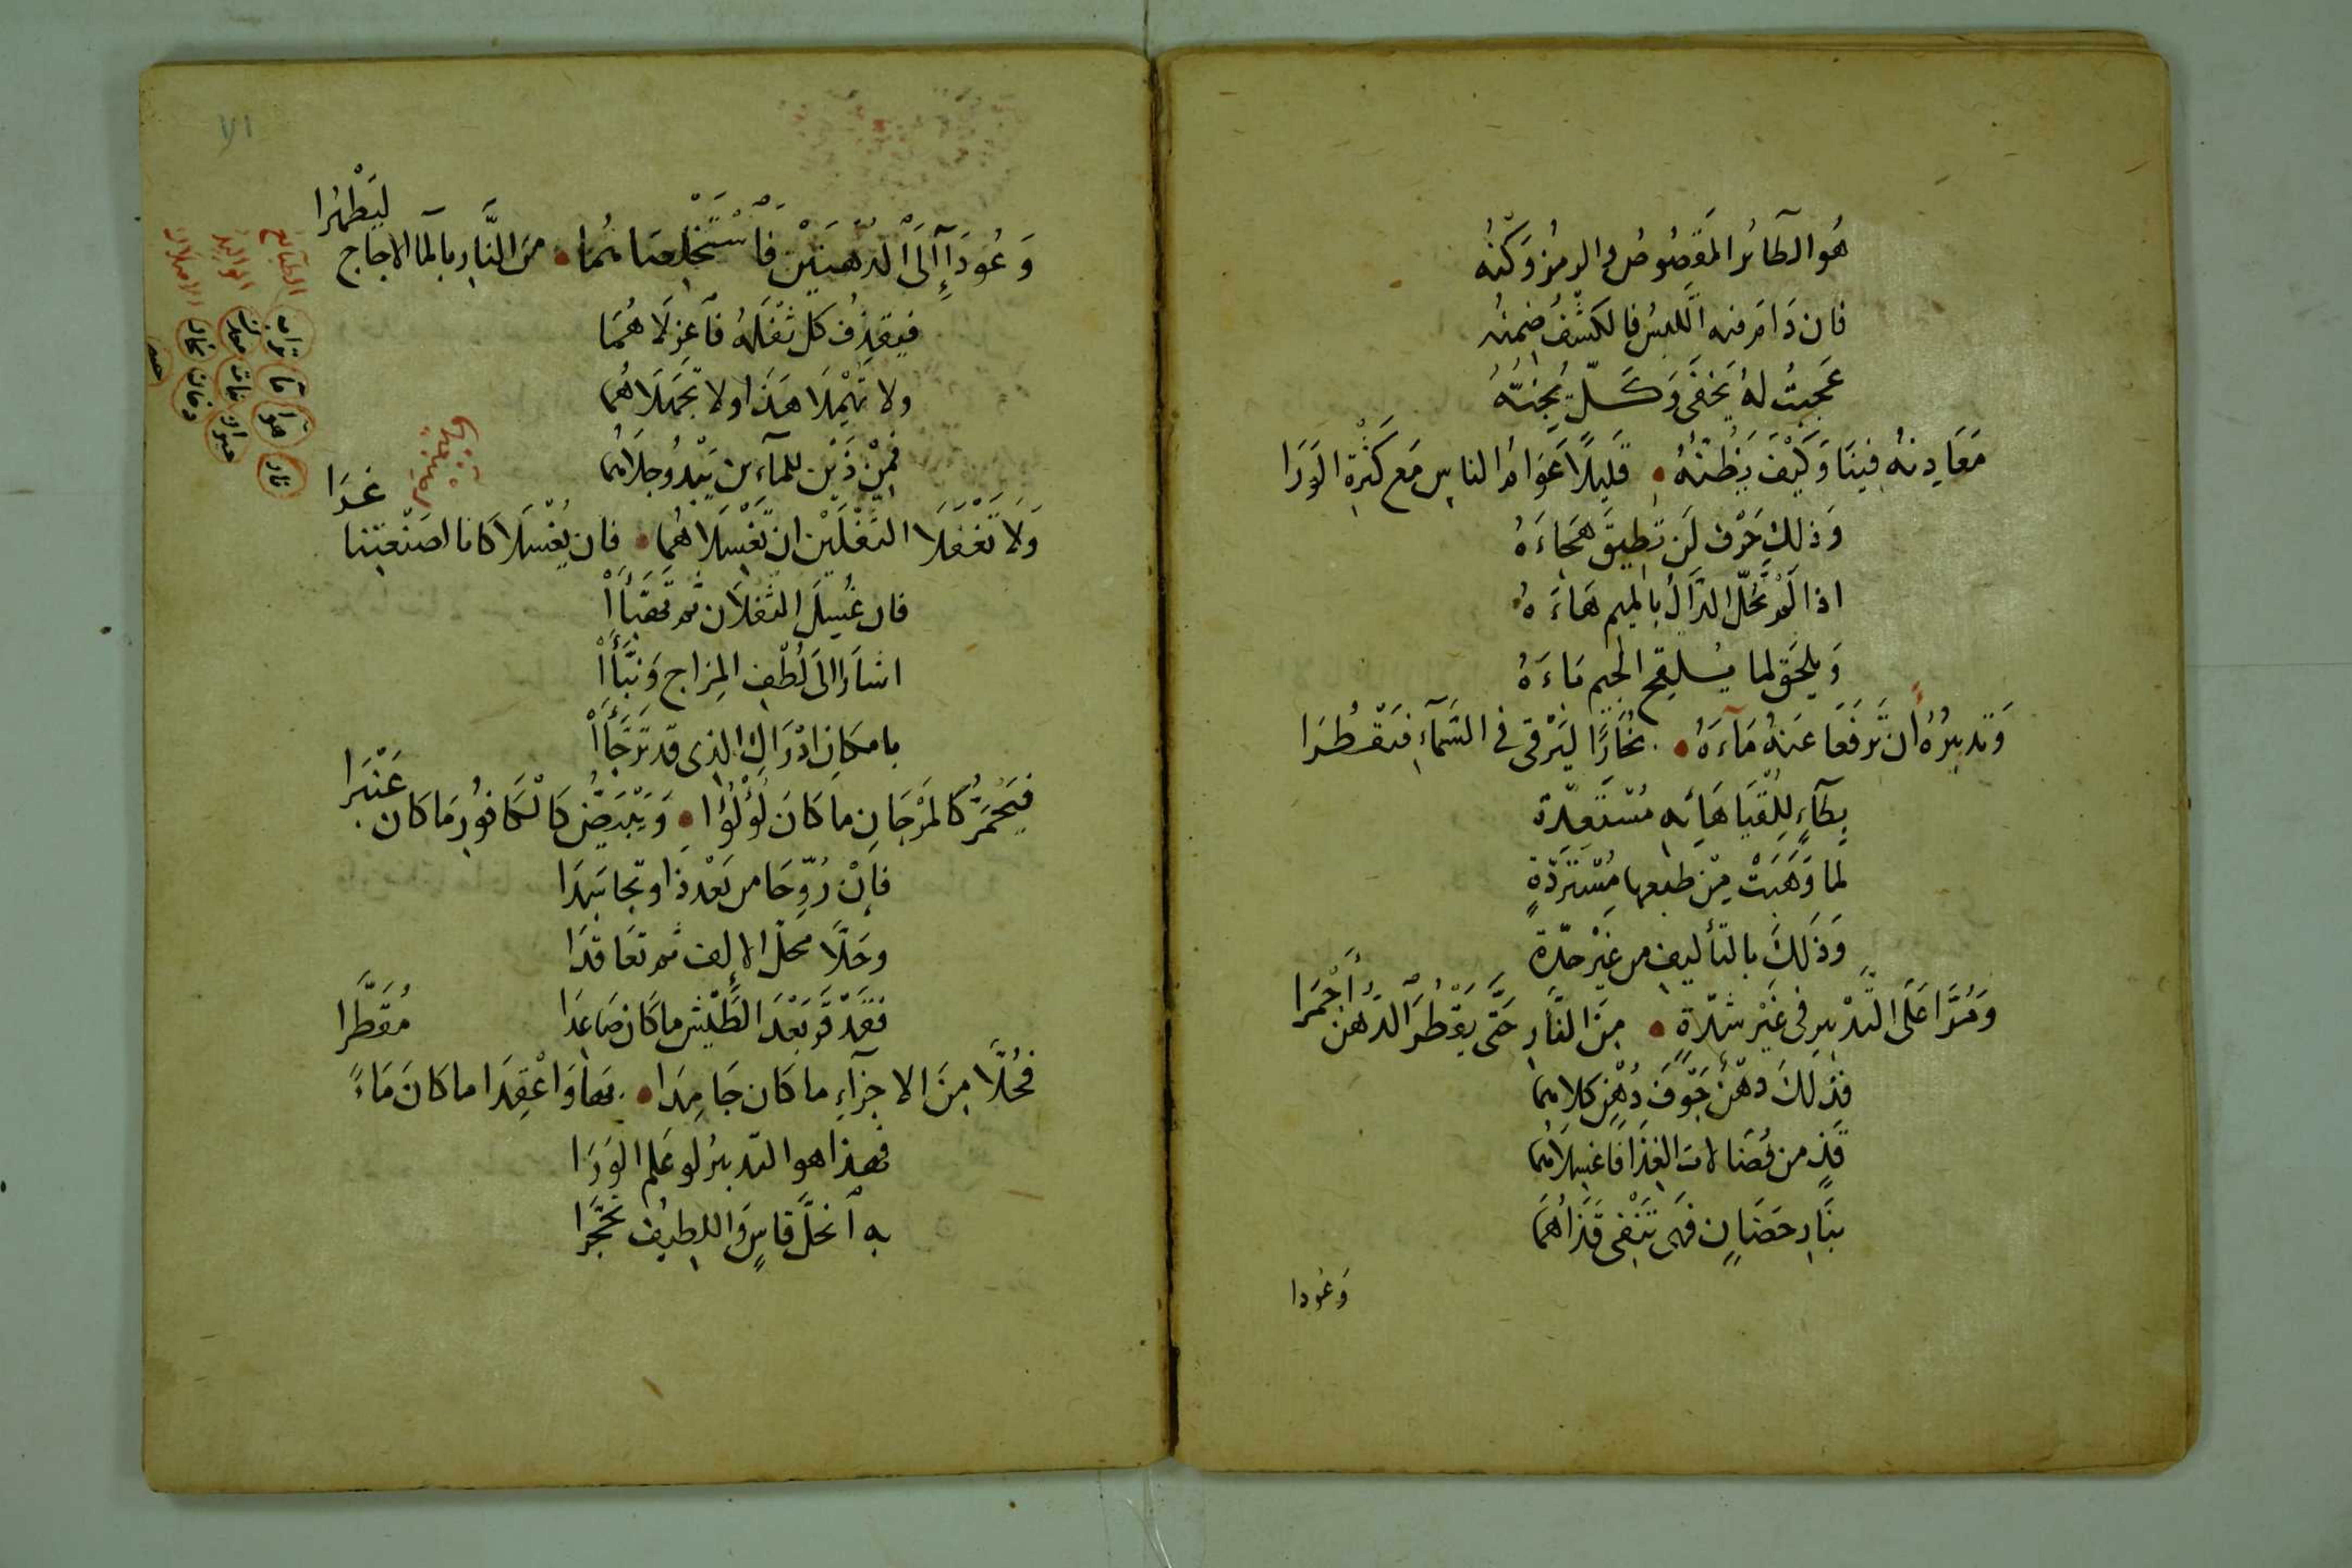 هُوَ الطَآئرُ المَقصُوصُ والرمزُ وَكْنُه
فان دَامَ منه اللبسُ فالكشْفُ ضِمنُه
عَجِبتُ لهُ يَخفَى وَكَلٌّ يُجِنُّهُ
مَعَادِنهُ فِينَا وَكَيْفَ يَظُنّهُ • قَلِيلًا عَوَامُ الناسِ مَع كَثْرةِ الوَرَا
وَذلكَ حَرْف لَن تُطِيقَ هَجَاءَهُ
اذا لَمْ تَحُلّ الدَّالُ بالميم هَاءَهُ
وَيلحَق لما الجيم مَاءَهُ
وَتَدبيرُهُ أن تَرفَعَا عَنهُ مَآءَهُ • بُخَارًا لِيَرْقى فى السَّمَآءِ فَيَقْطُرَا
بِطَآءٍ لِلُقْيَا هَائِه مُسْتَعِدّة
لما وَهَبَتْ مِنْ طبعها مُسْتَرَدّةٍ
وَذَلكَ بالتأليف من غَيْر حدّة
وَمُرَّا عَلَى التَّدْبيرِ فى غَيْر شدّةٍ • مِنَ النَّارِ حَتَّى يَقْطُرَ الدُهنُ أَحْمَرا
فذلكَ دهْنٌ جَوْفَ دُهْنٍ كلاهما
قذٍ من فُضَالات الغِذَا فَاغسِلاهُمَا
بنَارِ حَضَانٍ فَهى تَنْفى قَذَاهُمَا
وَعُودا
وَعُودَآ إِلَى الدُّهنَيْنِ فَاسْتَخْلِصَاهُمَا • مِنَ النَّارِ بالما الاجاج لِيَطْهُرا
فيقذِفُ كل ثفْلَهُ فَاعزلَا هُمَا
ولا تُهْمِلَا هَذَا ولا تَجهَلَاهُمَا
فَمِنْ ذَيْن للماءين يَبْدُو جلَاهُمَا
وَلَا تَغْفَلَا الثفْلَيْن ان تَغْسِلَاهُمَا • فان يُغْسَلا كانا لصَنْعَتِنا غَدَا
فان غُسِلَ الثفلَان ثم تَهَبَّأَا
اشارَا الَى لُطْفِ المِزاجِ وَنَبَّأَا
بامكانِ ادْرَاكِ الذى قد تَرَجَّأَا
فَيَحْمَرُّ كَالمَرْجَانِ ما كَانَ لُؤْلُؤا • وَيَبْيَضُّ كَالكَافورِ مَا كَان عَنْبَرا
فإنْ رُوِّحَا من بَعْدِ ذا وتجاسَدَا
وحَلَّا محلّ الإلف ثم تعَاقدَا
فَقَدْ قَرَّ بَعْدَ الطَّيْشِ ما كان صَاعِدَا
فَحُلَّا مِنَ الاجزآءِ ما كان جَامِدَا • بها وَاعْقِدَا ما كانَ مَاءً مُقَطَّرا
فهذا هو التدبيرُ لو عَلم الوَرَا
به آنحَلَّ قاسٍ وَاللطيف تحَجَّرا
الطبايع
تراب
مآ
هوآ
نار
المواليد
معدن
نبات
حيوان
بخار
دخان